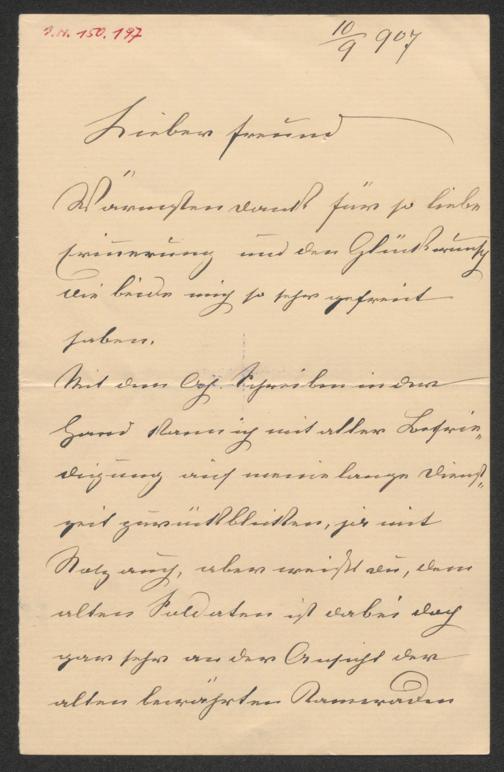 J.N. 150.197
10/9 907
Lieber Freund
Wärmsten Dank für so liebe
Erinnerung und den Glückwunsch
die beide mich so sehr gefreut
haben.
Mit dem Schreiben in der
Hand kann ich mit aller Befrie„
digung auf meine lange Dienst„
zeit zurückblicken, ja mit
Stolz auch, aber weißt du, dem
alten Soldaten ist dabei doch
gar sehr an der Ansicht der
alten bewährten Kameraden